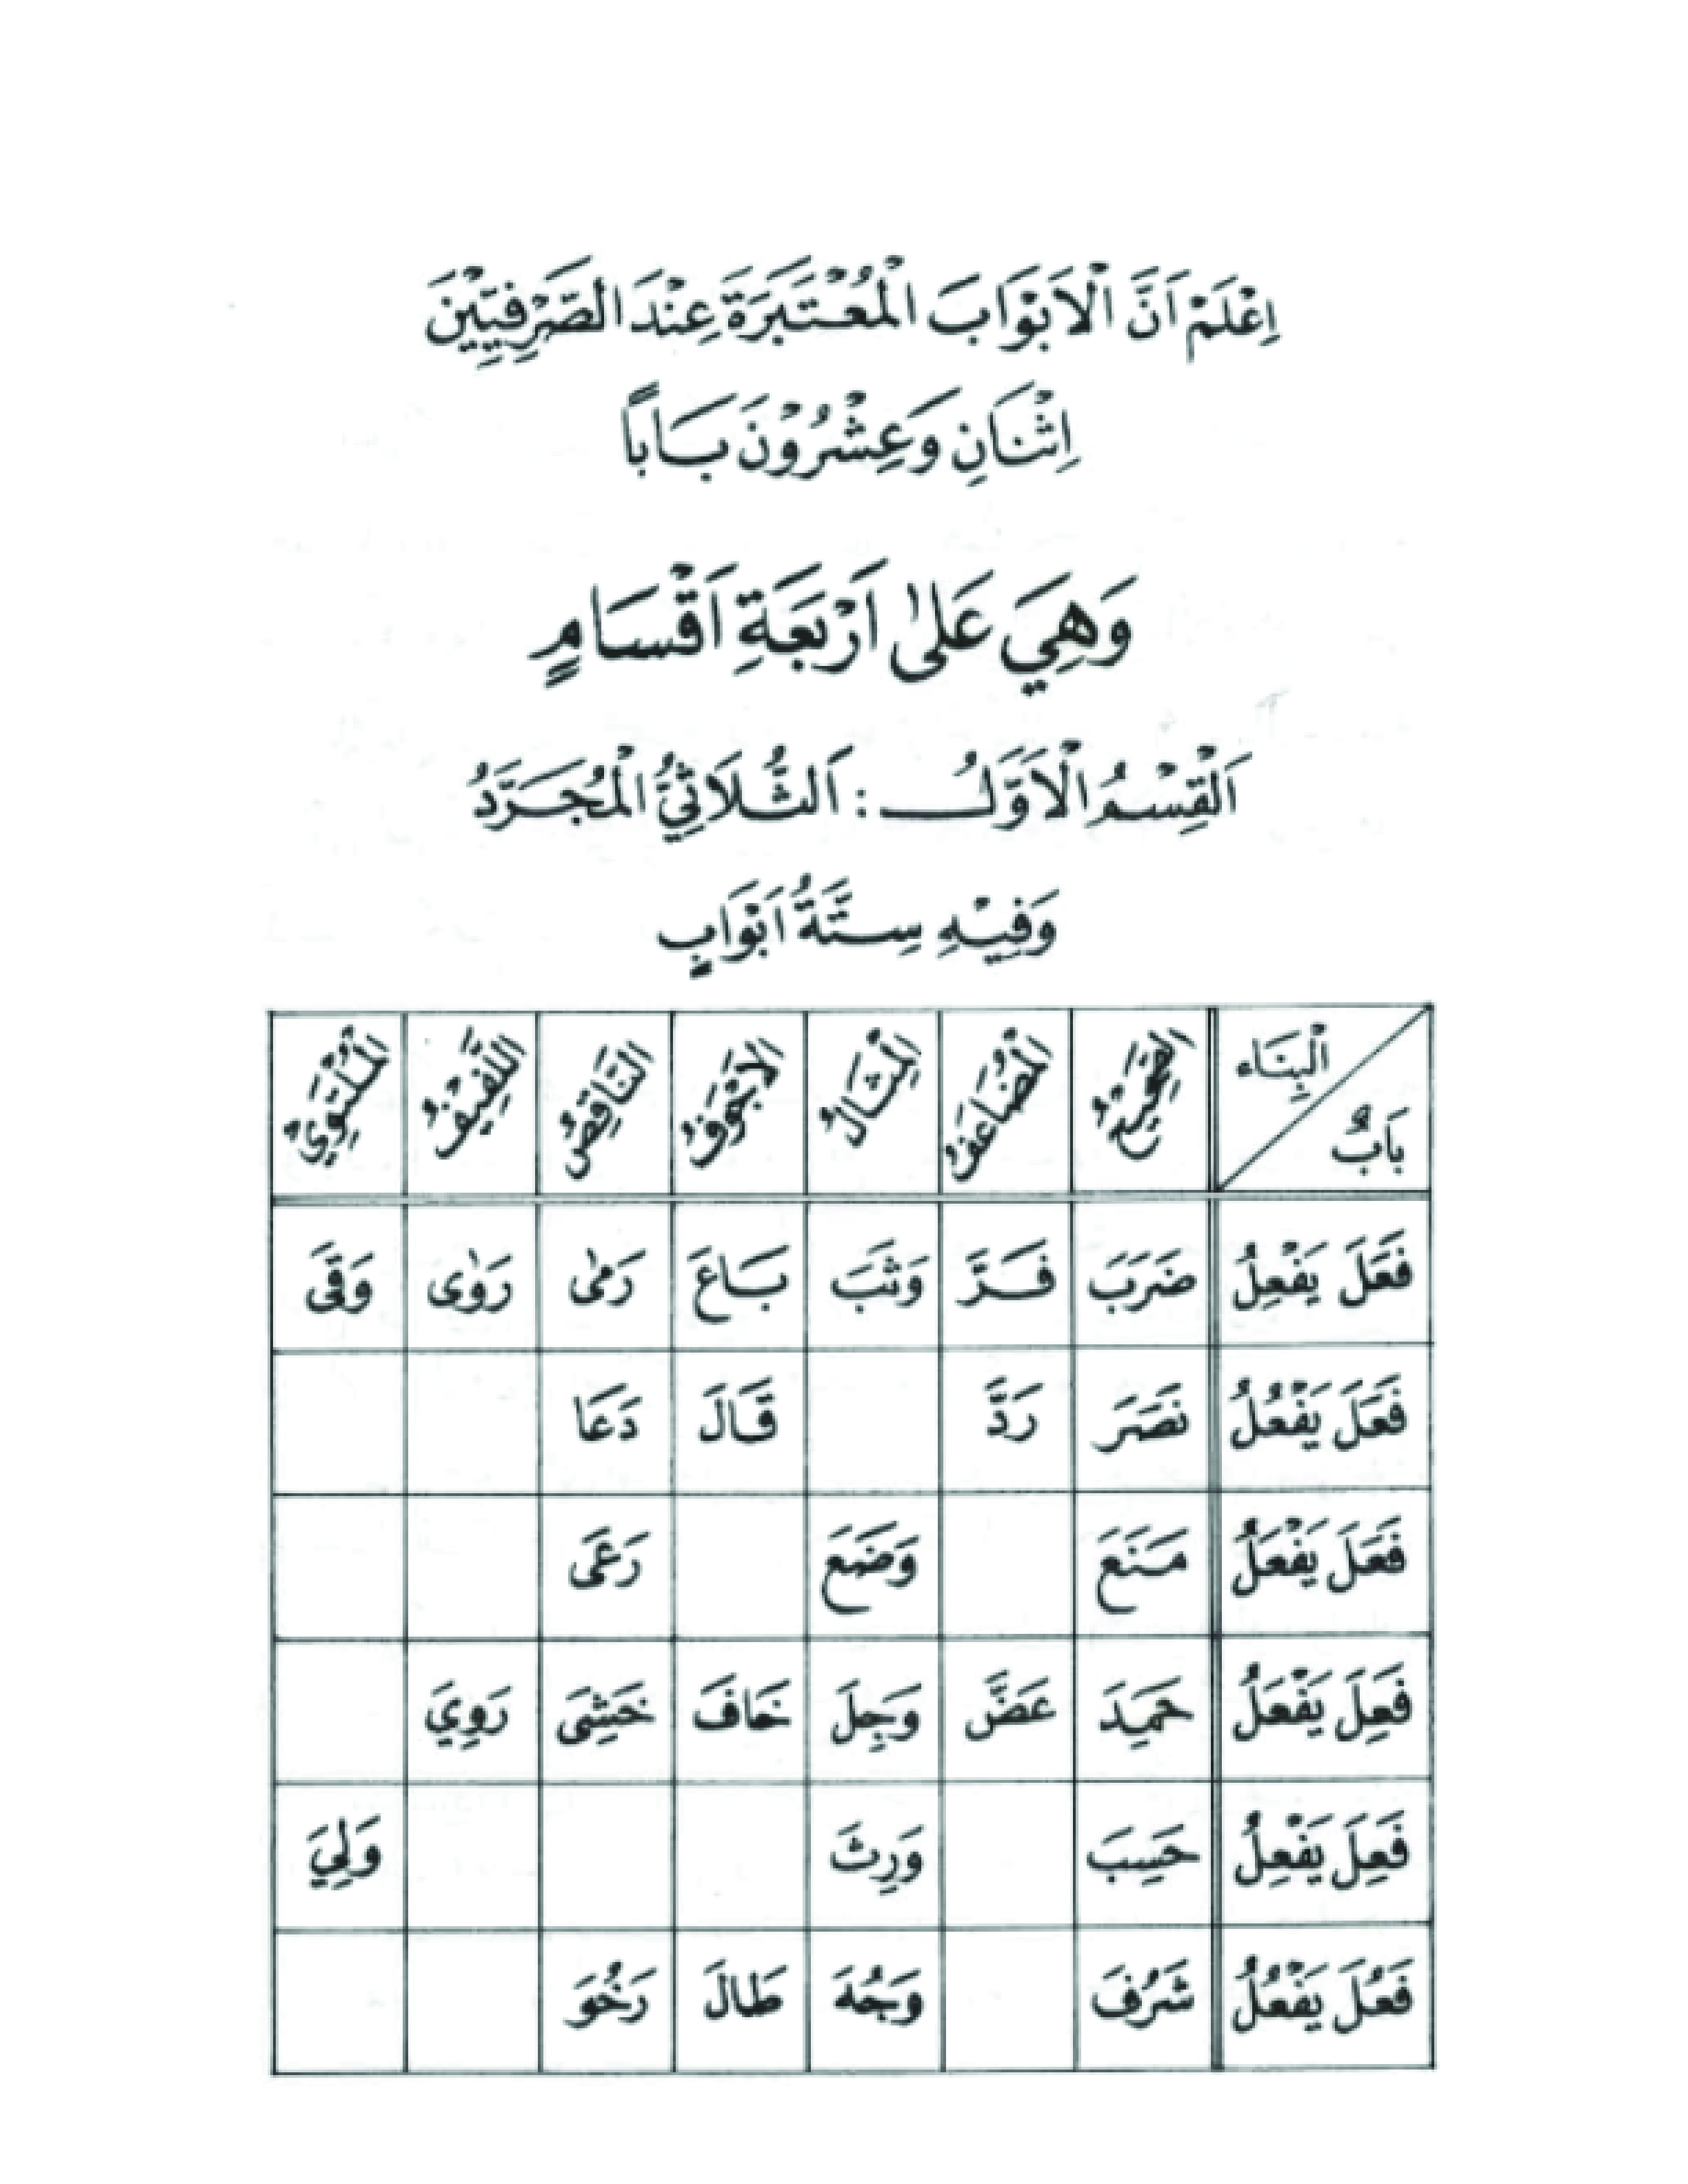 اِعْلَمْ اَنَّ الْاَبْوَابَ الْمُعْتَبَرَةَ عِنْدَ الصَّرْفِيِّيْنَ
اِثْنَانِ وَعِشْرُوْنَ بَابًا
وَهِيَ عَلٰى اَرْبَعَةِ اَقْسَامٍ
اَلْقِسْمُ الْاَوَّلُ : اَلثُّلَاثِيُّ الْمُجَرَّدُ
وَفِيْهِ سِتَّةُ اَبْوَابٍ
اَلْبِنَاء بَابٌ اَلصَّحِيْحُ اَلْمُضَاعَفُ اَلْمِثَالُ اَلْاَجْوَفُ اَلنَّاقِصُ اَللَّفِيْفُ اَلْمُلْتَوِيُ
فَعَلَ يَفْعِلُ ضَرَبَ فَرَّ وَثَبَ بَاعَ رَمٰى رَوٰى وَقَى
فَعَلَ يَفْعُلُ نَصَرَ رَدَّ قَالَ دَعَا
فَعَلَ يَفْعَلُ مَنَعَ وَضَعَ رَعَى
فَعِلَ يَفْعَلُ حَمِدَ عَضَّ وَجِلَ خَافَ خَشِىَ رَوِيَ
فَعِلَ يَفْعِلُ حَسِبَ وَرِثَ وَلِيَ
فَعُلَ يَفْعُلُ شَرُفَ وَجُهَ طَالَ رَخُوَ